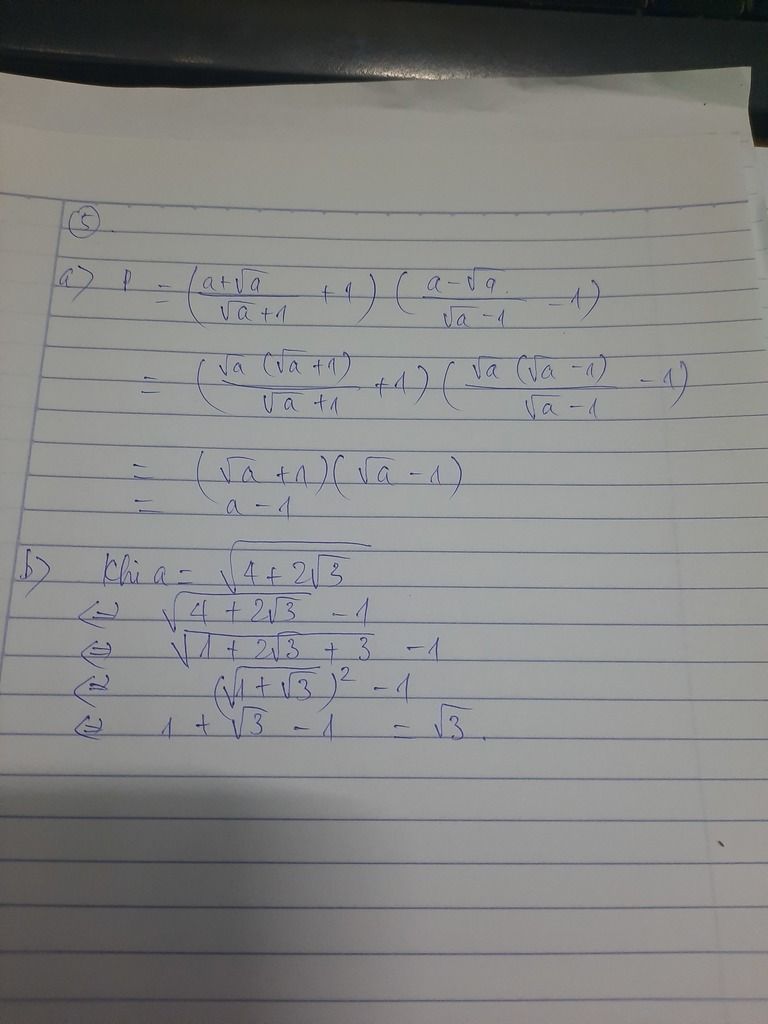 ⑤.
a) P = ((a+√a)/(√a+1) + 1) ((a-√a)/(√a-1) - 1)
= ((√a (√a+1))/(√a+1) + 1) ((√a (√a-1))/(√a-1) - 1)
= (√a + 1)(√a - 1)
= a - 1
b) Khi a = √(4 + 2√3)
⇔ √(4 + 2√3) - 1
⇔ √(1 + 2√3 + 3) - 1
⇔ (√(1 + √3))² - 1
⇔ 1 + √3 - 1 = √3.